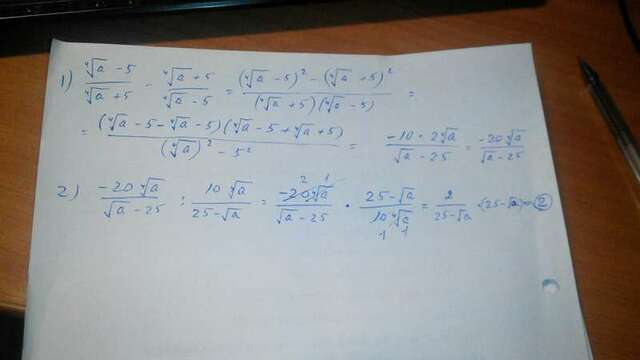 1) (⁴√a − 5)/(⁴√a + 5) − (⁴√a + 5)/(⁴√a − 5) = ((⁴√a − 5)² − (⁴√a + 5)²)/((⁴√a + 5)(⁴√a − 5)) =
= ((⁴√a − 5 − ⁴√a − 5)(⁴√a − 5 + ⁴√a + 5))/((⁴√a)² − 5²) = (−10 · 2⁴√a)/(√a − 25) = (−20⁴√a)/(√a − 25)
2) (−20⁴√a)/(√a − 25) : (10⁴√a)/(25 − √a) = (−20⁴√a)/(√a − 25) · (25 − √a)/(10⁴√a) = 2/(25 − √a) · (25 − √a) = 2